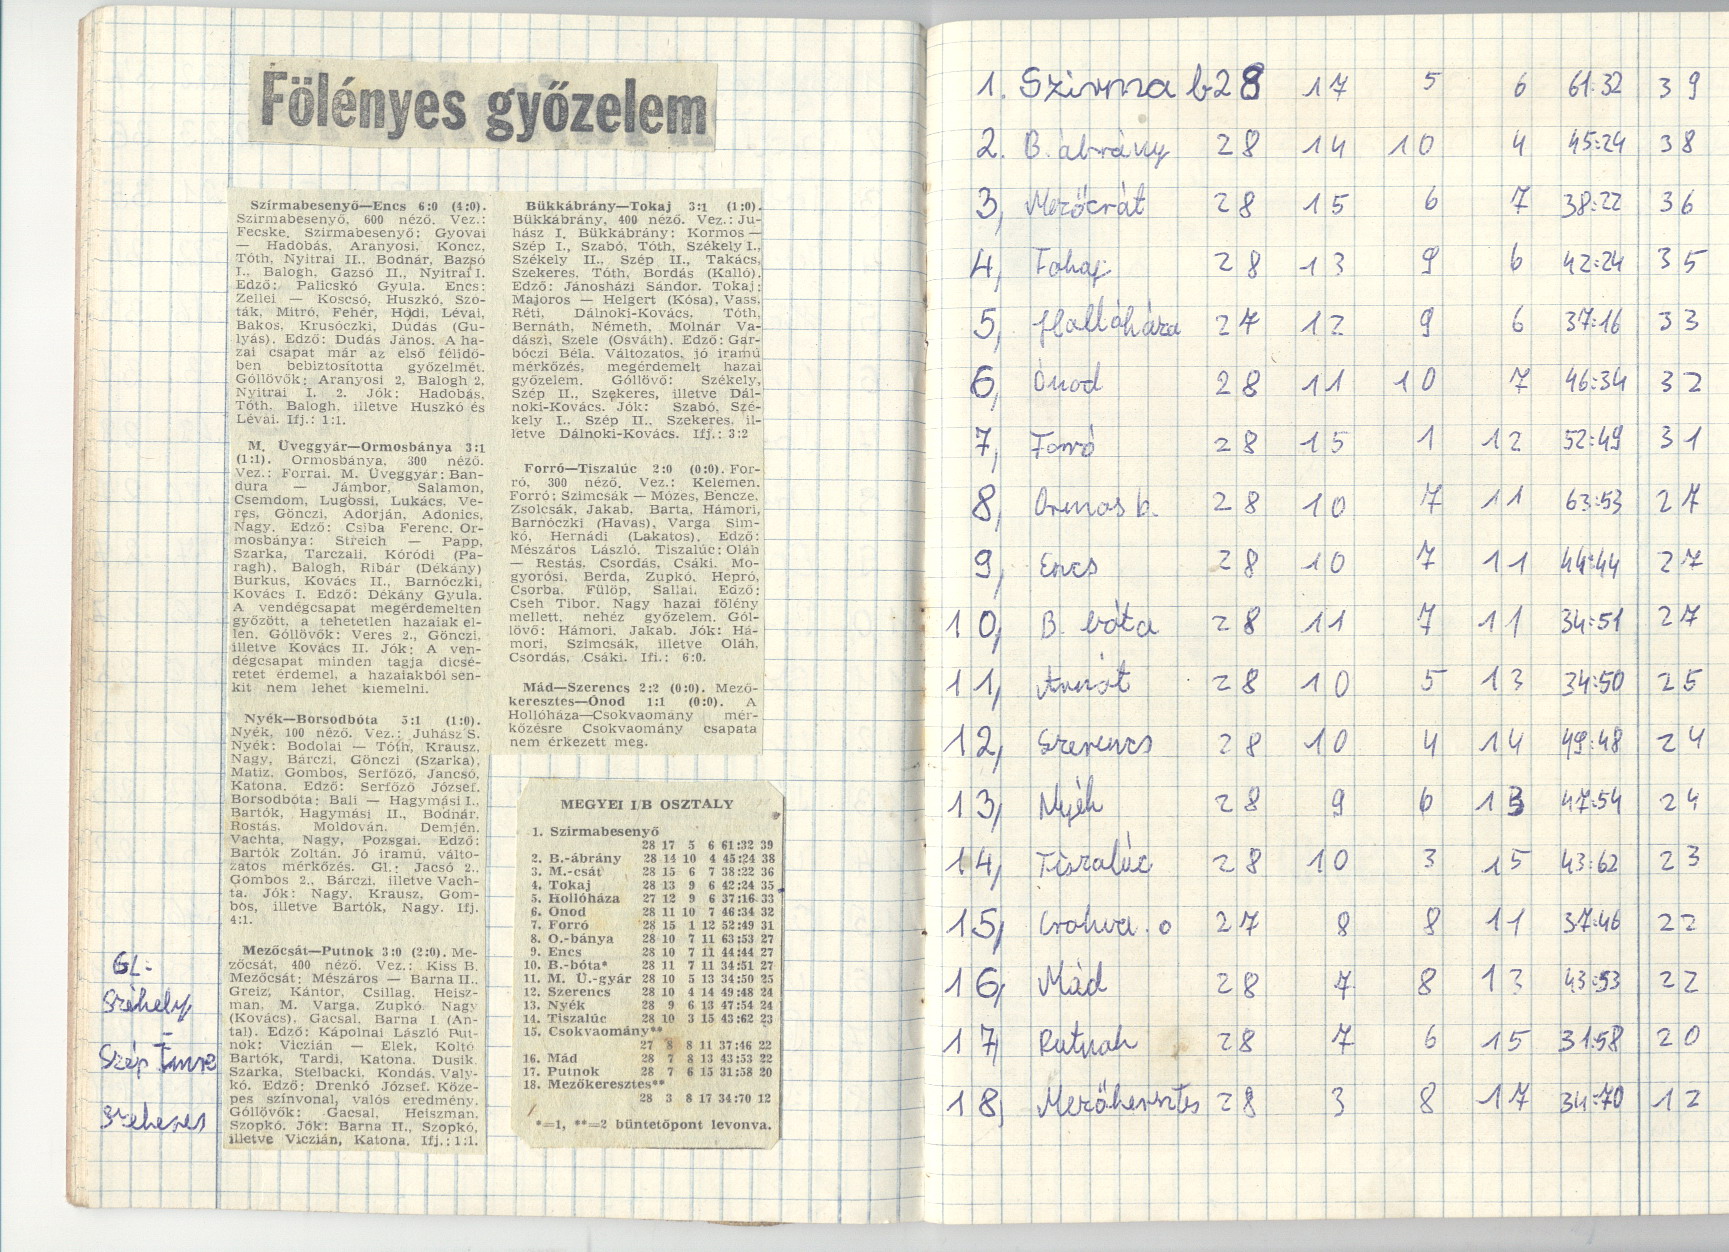 Fölényes győzelem
Szirmabesenyő—Encs 6:0 (4:0).
Szirmabesenyő, 600 néző. Vez.:
Fecske. Szirmabesenyő: Gyovai
— Hadobás, Aranyosi, Koncz,
Tóth, Nyitrai II., Bodnár, Bazsó
I., Balogh, Gazsó II., Nyitrai I.
Edző: Palicskó Gyula. Encs:
Zellei — Koscsó, Huszkó, Szo-
ták, Mitró, Fehér, Hódi, Lévai,
Bakos, Krusóczki, Dudás (Gu-
lyás). Edző: Dudás János. A ha-
zai csapat már az első félidő-
ben bebiztosította győzelmét.
Góllövők: Aranyosi 2, Balogh 2,
Nyitrai I. 2. Jók: Hadobás,
Tóth, Balogh, illetve Huszkó és
Lévai. Ifj.: 1:1.
M. Üveggyár—Ormosbánya 3:1
(1:1). Ormosbánya, 300 néző.
Vez.: Forrai. M. Üveggyár: Ban-
dura — Jámbor, Salamon,
Csemdom, Lugossi, Lukács, Ve-
res, Gönczi, Adorján, Adonics,
Nagy. Edző: Csiba Ferenc. Or-
mosbánya: Streich — Papp,
Szarka, Tarczali, Kóródi (Pa-
ragh), Balogh, Ribár (Dékány)
Burkus, Kovács II., Barnóczki,
Kovács I. Edző: Dékány Gyula.
A vendégcsapat megérdemelten
győzött, a tehetetlen hazaiak el-
len. Góllövők: Veres 2., Gönczi,
illetve Kovács II. Jók: A ven-
dégcsapat minden tagja dicsé-
retet érdemel, a hazaiakból sen-
kit nem lehet kiemelni.
Nyék—Borsodbóta 5:1 (1:0).
Nyék, 100 néző. Vez.: Juhász S.
Nyék: Bodolai — Tóth, Krausz,
Nagy, Bárczi, Gönczi (Szarka),
Matiz, Gombos, Serfőző, Jancsó,
Katona. Edző: Serfőző József.
Borsodbóta: Bali — Hagymási I.,
Bartók, Hagymási II., Bodnár,
Rostás, Moldován, Demjén,
Vachta, Nagy, Pozsgai. Edző:
Bartók Zoltán. Jó iramú, válto-
zatos mérkőzés. Gl.: Jacsó 2.,
Gombos 2., Bárczi, illetve Vach-
ta. Jók: Nagy, Krausz, Gom-
bos, illetve Bartók, Nagy. Ifj.
4:1.
Mezőcsát—Putnok 3:0 (2:0). Me-
zőcsát, 400 néző. Vez.: Kiss B.
Mezőcsát: Mészáros — Barna II.,
Greiz, Kántor, Csillag, Heisz-
man, M. Varga, Zupkó, Nagy
(Kovács), Gacsal, Barna I. (An-
tal). Edző: Kápolnai László Put-
nok: Viczián — Elek, Koltó
Bartók, Tardi, Katona, Dusik,
Szarka, Stelbacki, Kondás, Valy-
kó. Edző: Drenkó József. Köze-
pes színvonal, valós eredmény.
Góllövők: Gacsal, Heiszman,
Szopkó. Jók: Barna II., Szopkó,
illetve Viczián, Katona. Ifj.: 1:1.
Bükkábrány—Tokaj 3:1 (1:0).
Bükkábrány, 400 néző. Vez.: Ju-
hász I. Bükkábrány: Kormos —
Szép I., Szabó, Tóth, Székely I.,
Székely II., Szép II., Takács,
Szekeres, Tóth, Bordás (Kalló).
Edző: Jánosházi Sándor. Tokaj:
Majoros — Helgert (Kósa), Vass,
Réti, Dálnoki-Kovács, Tóth,
Bernáth, Németh, Molnár Va-
dászi, Szele (Osváth). Edző: Gar-
bóczi Béla. Változatos, jó iramú
mérkőzés, megérdemelt hazai
győzelem. Góllövő: Székely,
Szép II., Szekeres, illetve Dál-
noki-Kovács. Jók: Szabó, Szé-
kely I., Szép II., Szekeres, il-
letve Dálnoki-Kovács. Ifj.: 3:2
Forró—Tiszalúc 2:0 (0:0). For-
ró, 300 néző. Vez.: Kelemen.
Forró: Szimcsák — Mózes, Bencze,
Zsolcsák, Jakab, Barta, Hámori,
Barnóczki (Havas), Varga Sim-
kó, Hernádi (Lakatos). Edző:
Mészáros László. Tiszalúc: Oláh
— Restás, Csordás, Csáki, Mo-
gyorósi, Berda, Zupkó, Hepró,
Csorba, Fülöp, Sallai. Edző:
Cseh Tibor. Nagy hazai fölény
mellett, nehéz győzelem. Gól-
lövő: Hámori, Jakab. Jók: Há-
mori, Szimcsák, illetve Oláh,
Csordás, Csáki. Ifi.: 6:0.
Mád—Szerencs 2:2 (0:0). Mező-
keresztes—Ónod 1:1 (0:0). A
Hollóháza—Csokvaomány mér-
kőzésre Csokvaomány csapata
nem érkezett meg.
MEGYEI I/B OSZTÁLY
1. Szirmabesenyő
28 17 5 6 61:32 39
2. B.-ábrány 28 14 10 4 45:24 38
3. M.-csát 28 15 6 7 38:22 36
4. Tokaj 28 13 9 6 42:24 35
5. Hollóháza 27 12 9 6 37:16 33
6. Ónod 28 11 10 7 46:34 32
7. Forró 28 15 1 12 52:49 31
8. O.-bánya 28 10 7 11 63:53 27
9. Encs 28 10 7 11 44:44 27
10. B.-bóta* 28 11 7 11 34:51 27
11. M. Ü.-gyár 28 10 5 13 34:50 25
12. Szerencs 28 10 4 14 49:48 24
13. Nyék 28 9 6 13 47:54 24
14. Tiszalúc 28 10 3 15 43:62 23
15. Csokvaomány**
27 8 8 11 37:46 22
16. Mád 28 7 8 13 43:53 22
17. Putnok 28 7 6 15 31:58 20
18. Mezőkeresztes**
28 3 8 17 34:70 12
*=1, **=2 büntetőpont levonva.
GL.-
Székely
-
Szép Imre
Szekeres
1. Szirma b 28 17 5 6 61:32 39
2. B. ábrány 28 14 10 4 45:24 38
3, Mezőcsát 28 15 6 7 38:22 36
4, Tokaj 28 13 9 6 42:24 35
5, Hollóháza 27 12 9 6 37:16 33
6, Ónod 28 11 10 7 46:34 32
7, Forró 28 15 1 12 52:49 31
8, Ormos b. 28 10 7 11 63:53 27
9, Encs 28 10 7 11 44:44 27
10, B. bóta 28 11 7 11 34:51 27
11, 28 10 5 13 34:50 25
12, Szerencs 28 10 4 14 49:48 24
13, Nyék 28 9 6 13 47:54 24
14, Tiszalúc 28 10 3 15 43:62 23
15, Csokva. o 27 8 8 11 37:46 22
16, Mád 28 7 8 13 43:53 22
17, Putnok 28 7 6 15 31:58 20
18, Mezőkeresztes 28 3 8 17 34:70 12